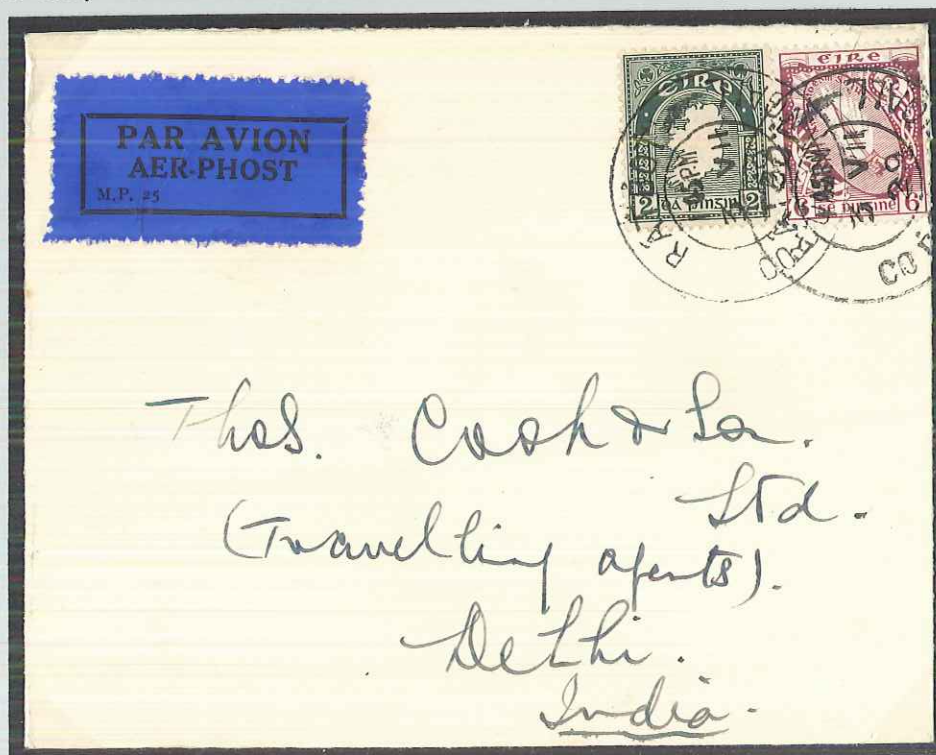 PAR AVION
AER-PHOST
M.P. 25
éIRe
2 dá pinsin 2
éIRe
6 sé pingine 6
VII
29
CO
Thos. Cook & Son.
Ltd.
(Travelling agents).
Delhi.
India.